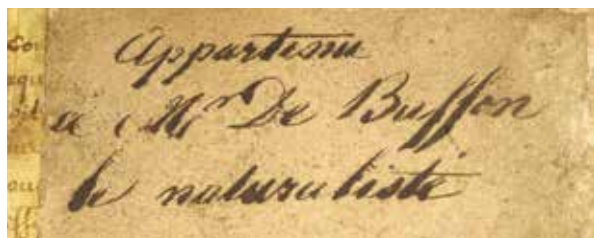 Appartenu
a Mr De Buffon
le naturaliste